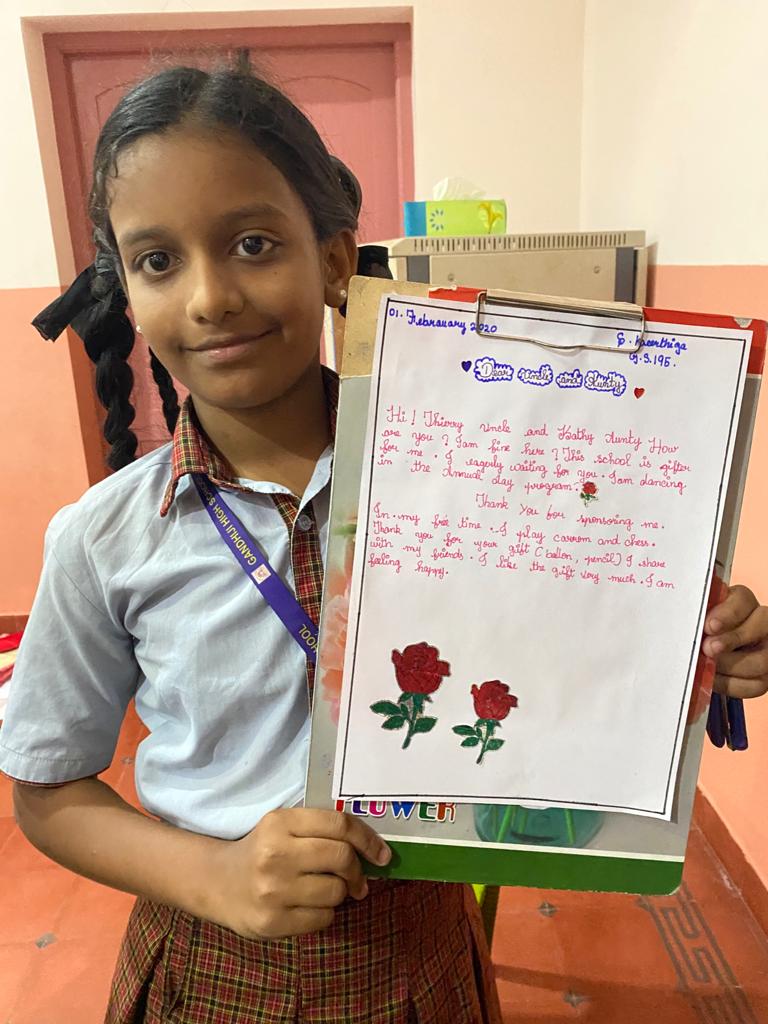 01. Febrauary 2020
S. Keerthiga
G.S.195.
Dear Uncle and Aunty
Hi! Thierry Uncle and Kathy Aunty How
are you? I am fine here? This school is gifter
for me. I eagerly waiting for you. I am dancing
in the Annual day program.
Thank You for sponsoring me.
In my free time. I play carrom and chess.
Thank you for your gift (ballon, pencil) I share
with my friends. I like the gift very much. I am
feeling happy.
FLOWER
GANDHIJI HIGH SCHOOL